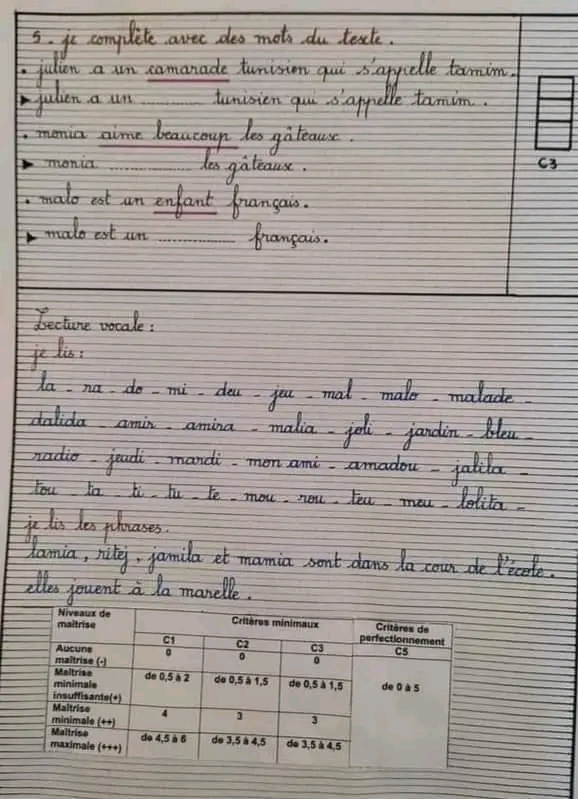 5. je complète avec des mots du texte.
• julien a un camarade tunisien qui s'appelle tamim.
▸ julien a un .............. tunisien qui s'appelle tamim.
• monia aime beaucoup les gâteaux.
▸ monia .............. les gâteaux.
C3
• malo est un enfant français.
▸ malo est un .............. français.
Lecture vocale :
je lis :
la - ra - do - mi - deu - jeu - mal - malo - malade -
dalida - amir - amira - malia - joli - jardin - bleu -
radio - jeudi - mardi - mon ami - amadou - jalila -
tou - ta - ti - tu - te - mou - rou - teu - meu - lolita -
je lis les phrases.
lamia, ritej, jamila et mamia sont dans la cour de l'école.
elles jouent à la marelle.
Niveaux de maîtrise Critères minimaux Critères de perfectionnement
C1 C2 C3 C5
Aucune maîtrise (-) 0 0 0
Maîtrise minimale insuffisante(+) de 0,5 à 2 de 0,5 à 1,5 de 0,5 à 1,5 de 0 à 5
Maîtrise minimale (++) 4 3 3
Maîtrise maximale (+++) de 4,5 à 6 de 3,5 à 4,5 de 3,5 à 4,5